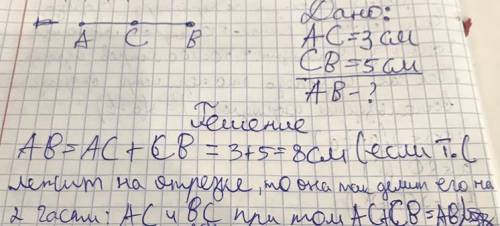 A C B
Дано:
AC=3 см
CB=5 см
AB-?
Решение
AB=AC+CB=3+5=8см (если т.C
лежит на отрезке, то она делит его на
2 части: AC и BC при том AC+CB=AB)